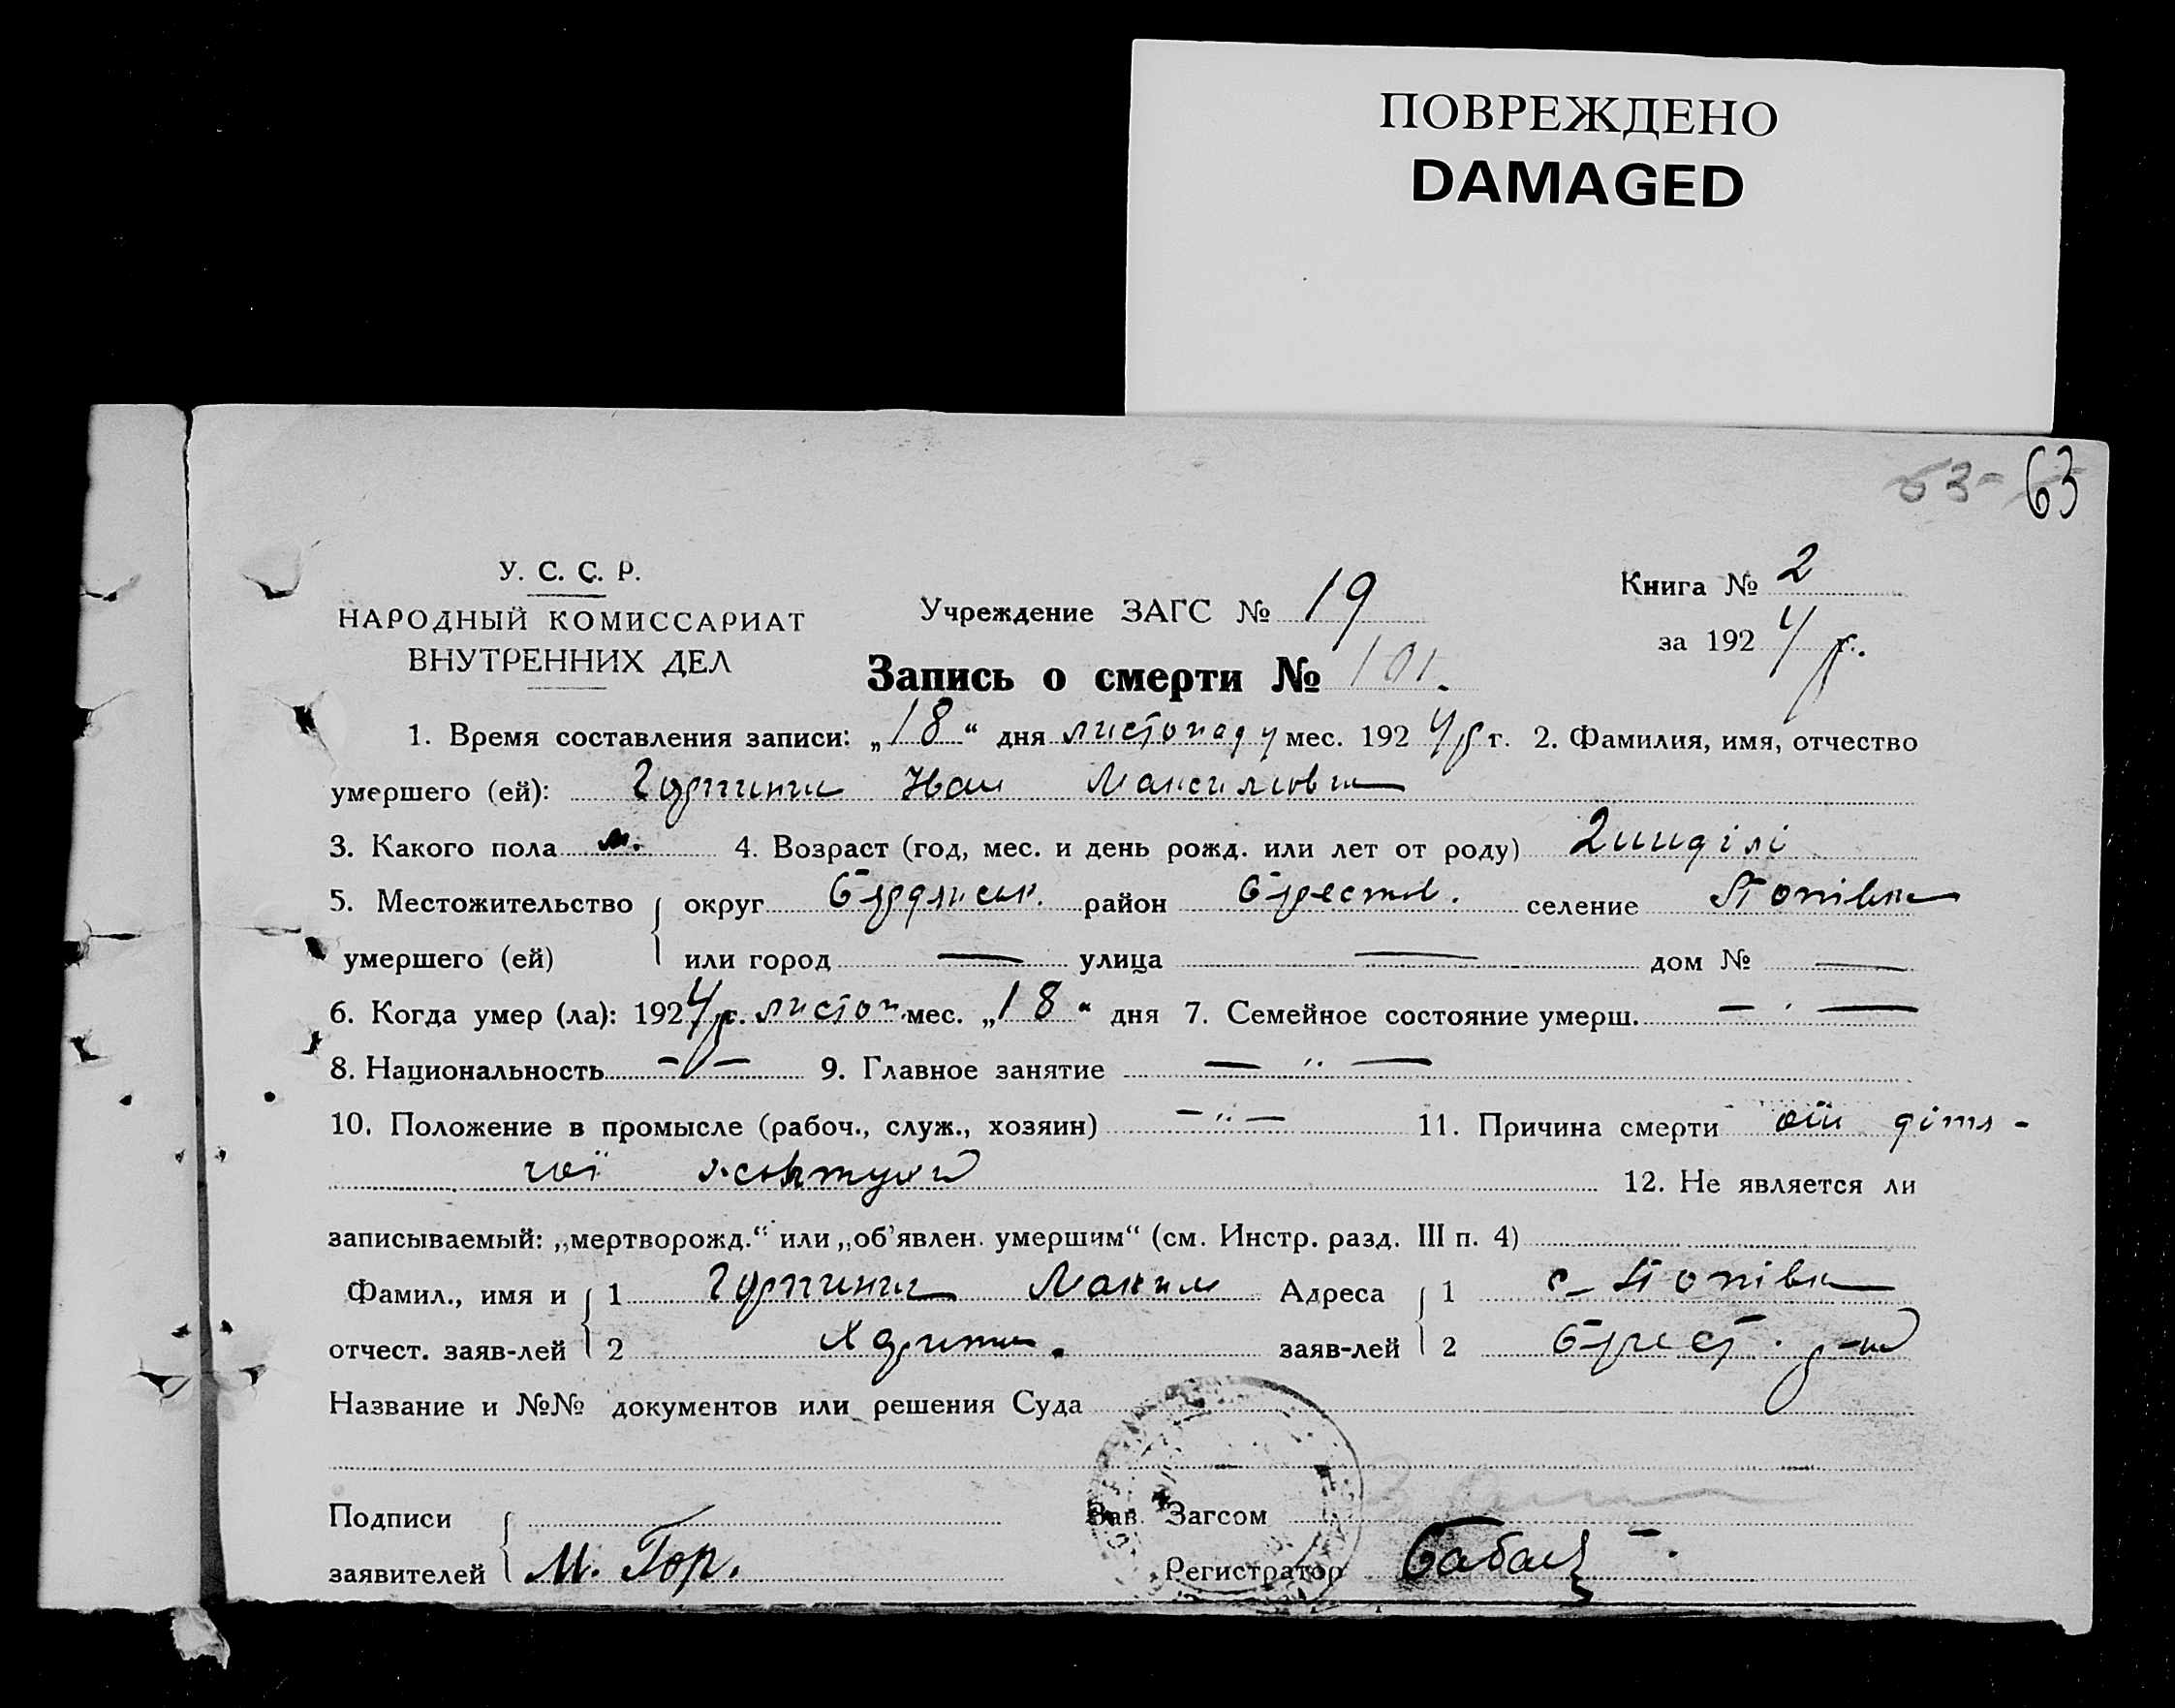 ПОВРЕЖДЕНО
DAMAGED
63- 63
У. С. С. Р.
НАРОДНЫЙ КОМИССАРИАТ
ВНУТРЕННИХ ДЕЛ
Учреждение ЗАГС № 19
Книга № 2
за 1924 р.
Запись о смерти № 101.
1. Время составления записи: „18“ дня листопаду мес. 1924 р г. 2. Фамилия, имя, отчество
умершего (ей): Иван Максимович
3. Какого пола м. 4. Возраст (год, мес. и день рожд. или лет от роду) 2
5. Местожительство округ Бердянськ. район селение
умершего (ей) или город — улица — дом № —
6. Когда умер (ла): 1924 р. листоп. мес. „18“ дня 7. Семейное состояние умерш. — . —
8. Национальность -"- 9. Главное занятие — " —
10. Положение в промысле (рабоч., служ., хозяин) -"- 11. Причина смерти від дітя-
чої
12. Не является ли
записываемый: „мертворожд.“ или „об’явлен. умершим“ (см. Инстр. разд. III п. 4)
Фамил., имя и 1 Максим Адреса 1 с.
отчест. заяв-лей 2 заяв-лей 2 р-н
Название и №№ документов или решения Суда
Подписи Зав. Загсом
заявителей М. Гор. Регистратор